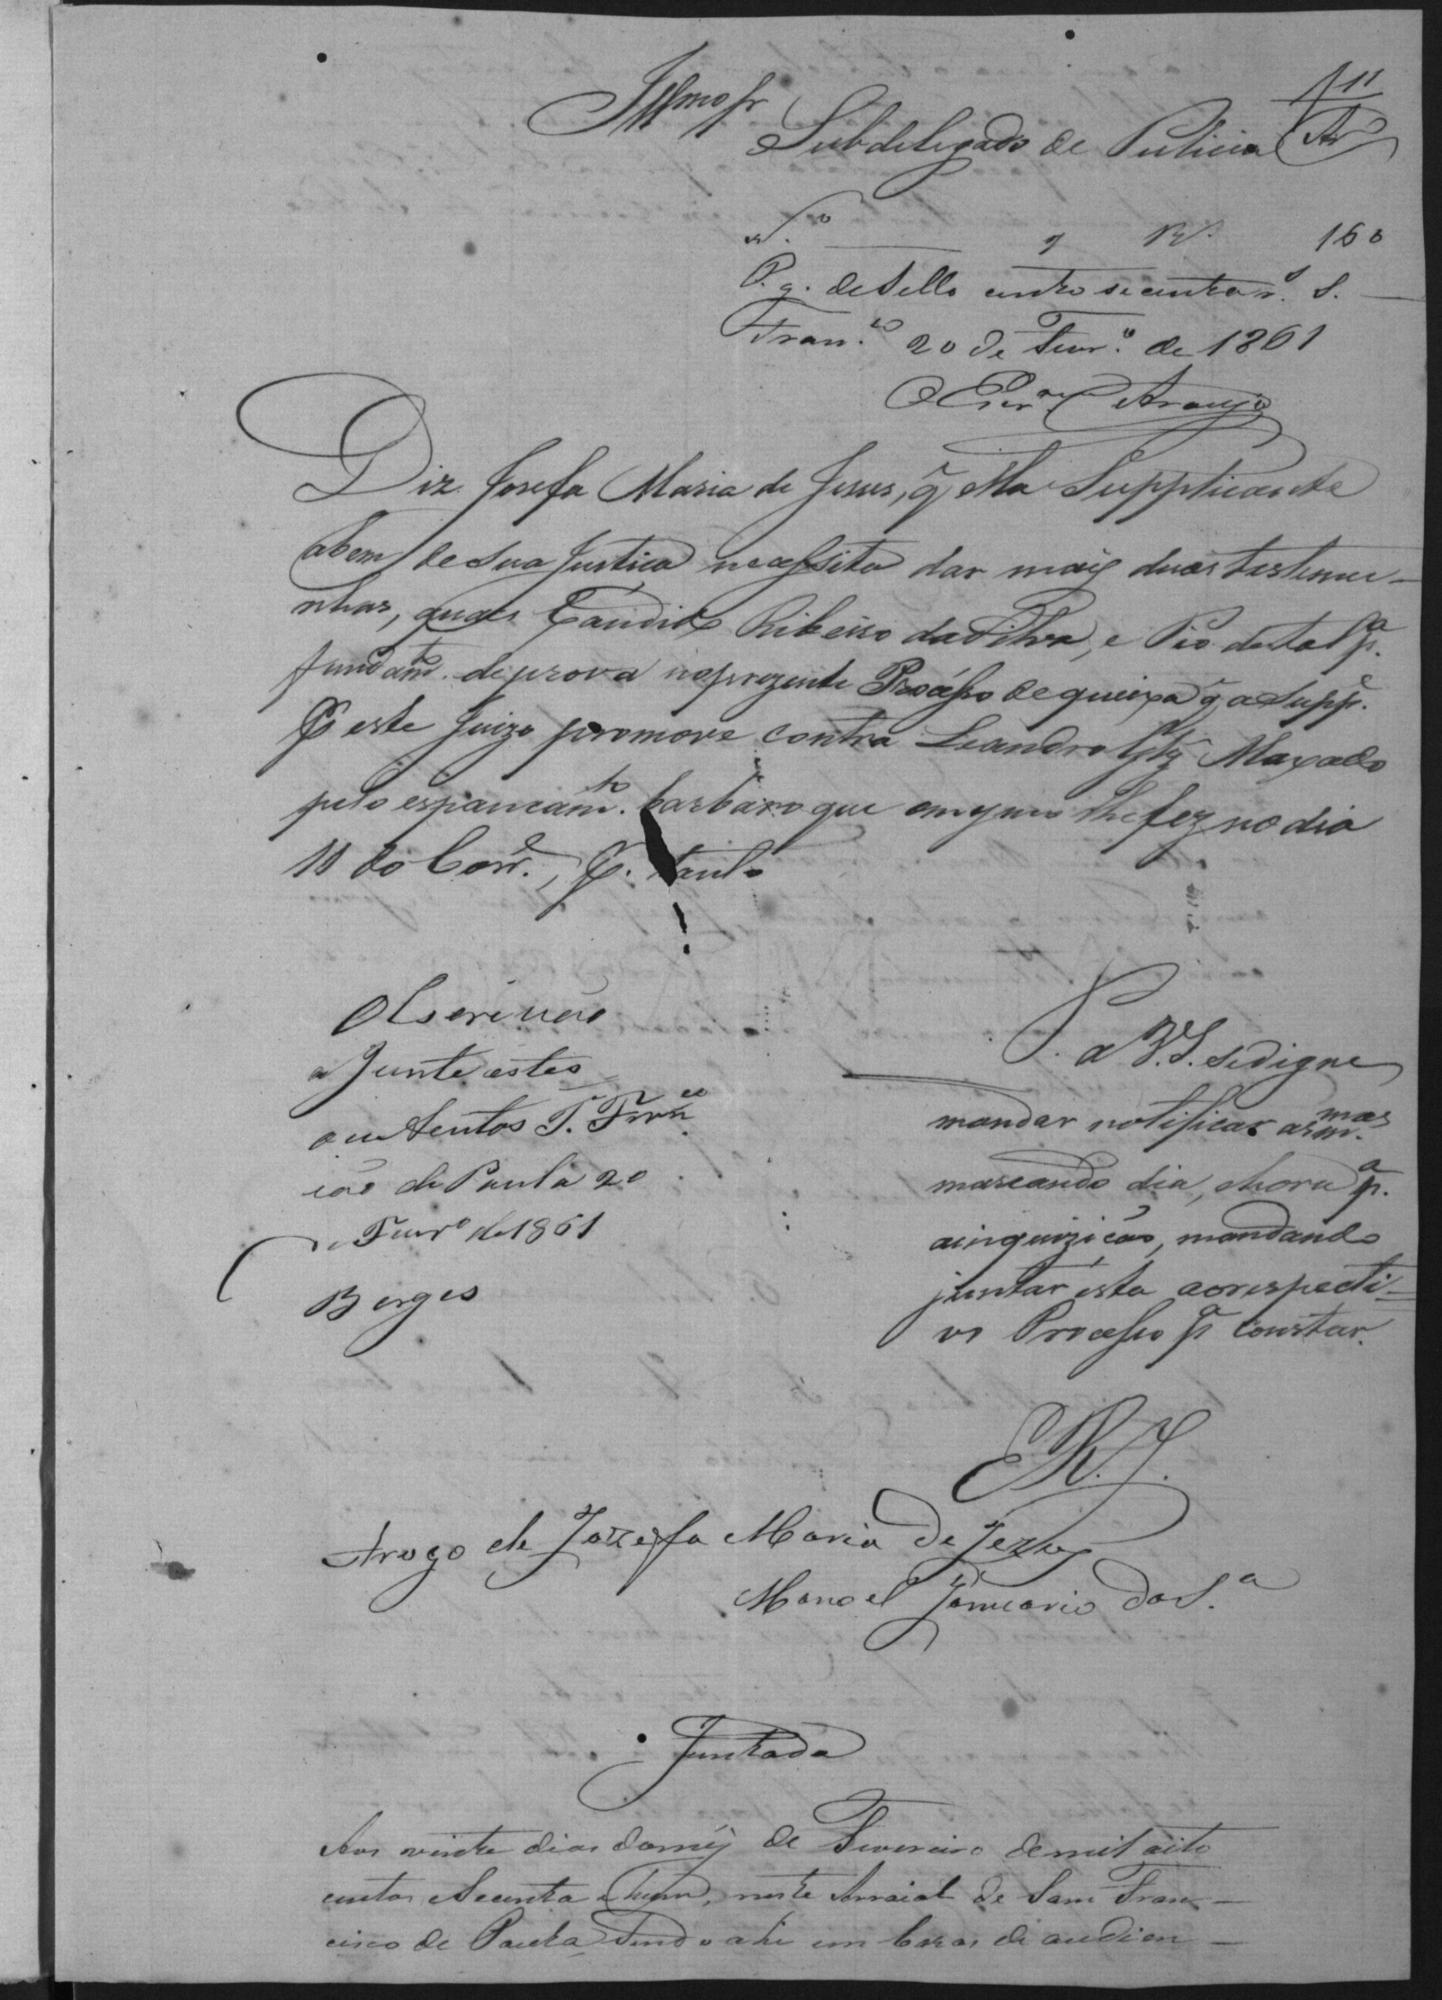 Illmo Sr
11
Subdelegado de Policia Ar.º
N.º 9 R.s 160
P. g. de Sello cento secenta r.s S.
Fran.co 20 de Fevr.º de 1861
O Escr.am Araujo
Diz Josefa Maria de Jesus, q̃ Ella Supplicante
abem de sua Justica necessita dar mais duas testemu-
nhas, quaes Candido Ribeiro da Silva, e Pio de tal p.a
fundam.to de prova no prezente Processo de queixa q̃ a Supp.e
P este Juizo promove contra Leandro Glz Maxado
pelo espancam.to barbaro que o mesmo lhe fez no dia
11 do Corr.e, P. tanto
O Escrivão
a Junte a estes
autentos S. Fran.co
de Paula 20
Fevr.º de 1861
Borges
P. a V.S. se digne
mandar notificar as m.mas
marcando dia, e hora p.a
a inquizicão, mandando
juntar esta ao respecti-
vo Processo p.a constar.
E R. J.
Arogo de Jozefa Maria de Jezus
Manoel Januario da S.a
Juntada
Aos vinte dias do mêz de Fevereiro de mil oito
centos e Secenta e hum, neste Arraial de Sam Fran-
cisco de Paula Sendo ahi em Cazas de audien-